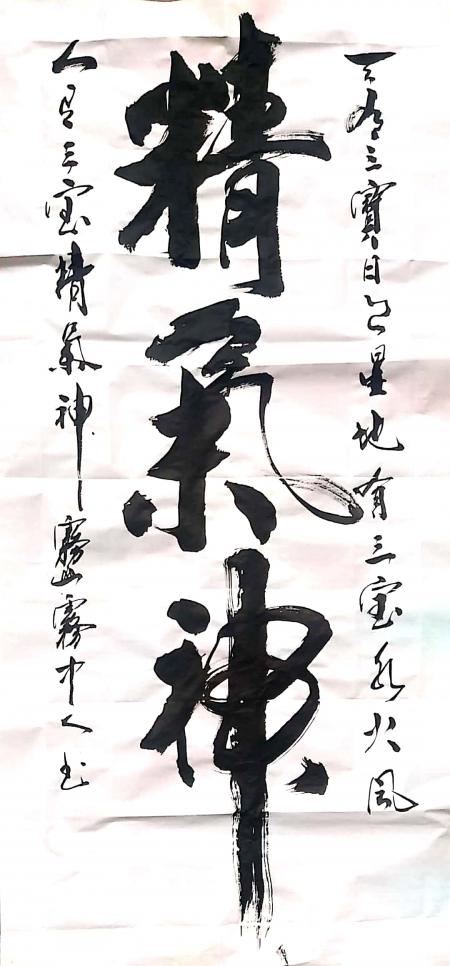 天有三寶日月星地有三宝水火風
精氣神
人有三宝精氣神 霧山霧中人书